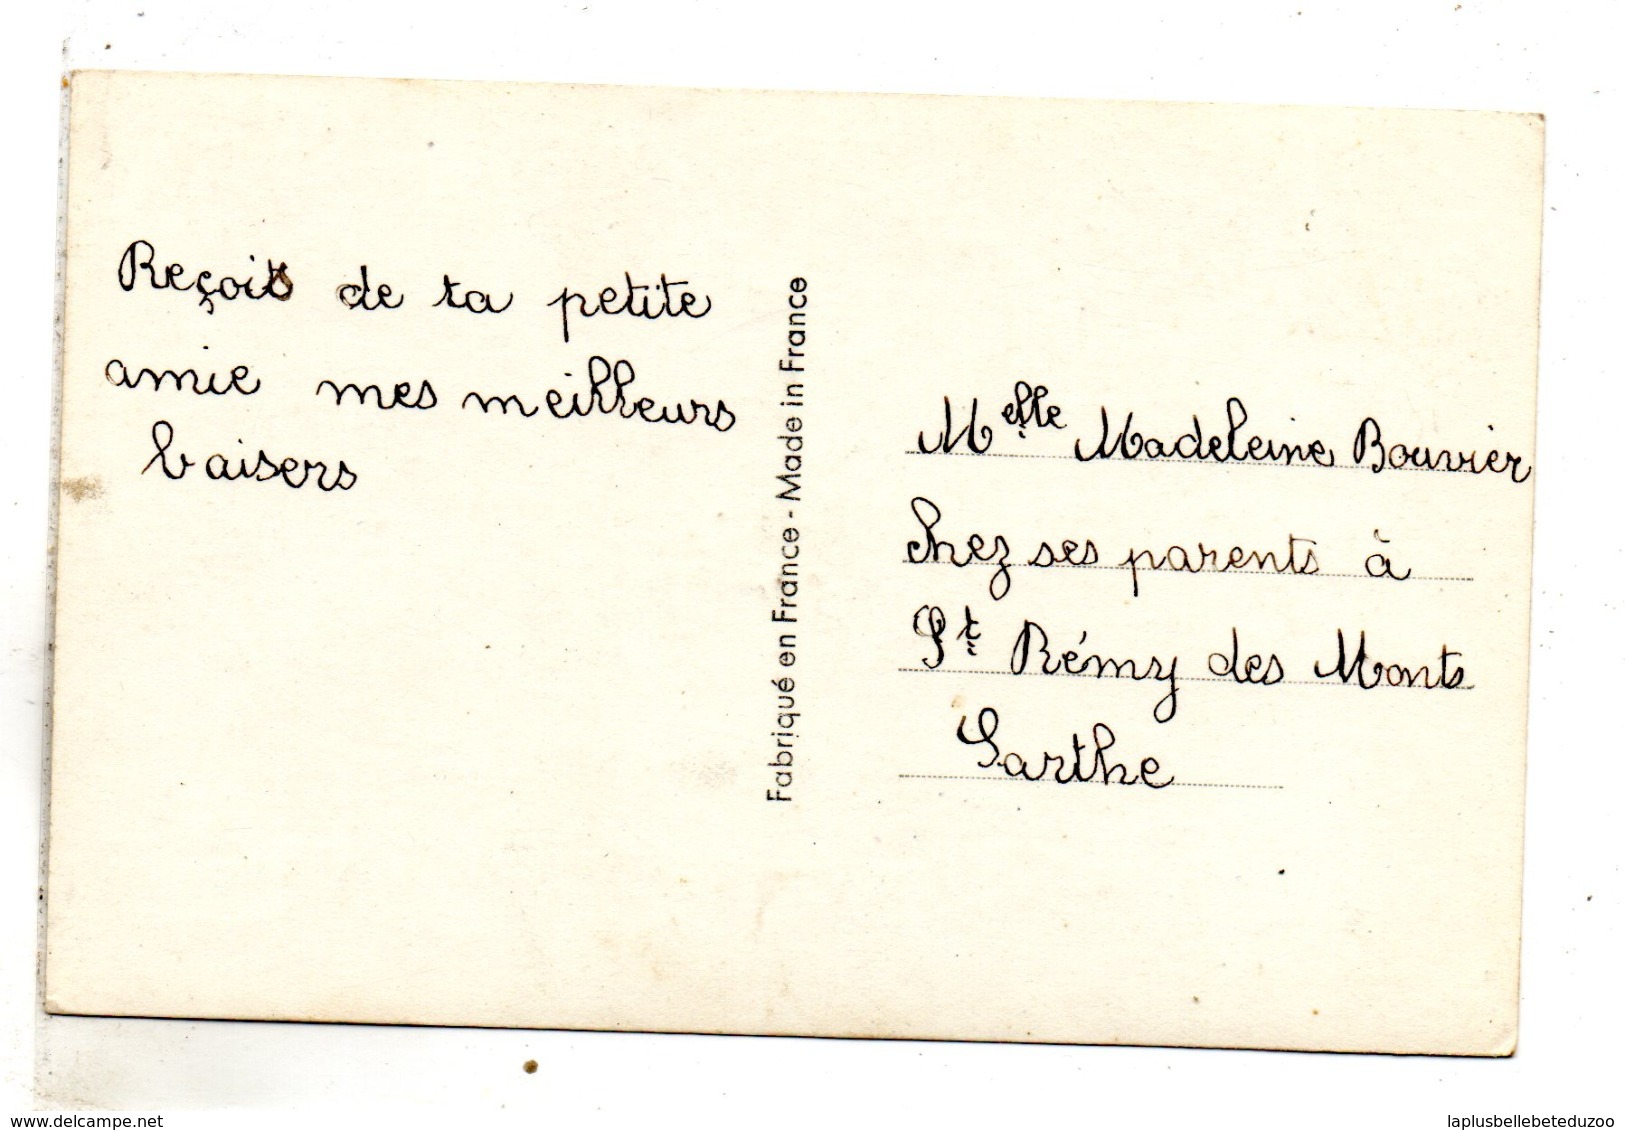 Reçois de ta petite
amie mes meilleurs
baisers
Fabriqué en France - Made in France
Melle Madeleine Bouvier
Chez ses parents à
St Rémy des Monts
Sarthe
www.delcampe.net
laplusbellebeteduzoo